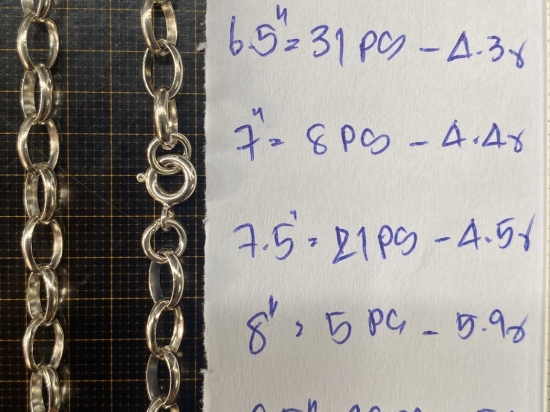 6.5" = 31 PCS - 4.38
7" = 8 PCS - 4.48
7.5" = 21 PCS - 4.58
8" = 5 PCS - 5.98